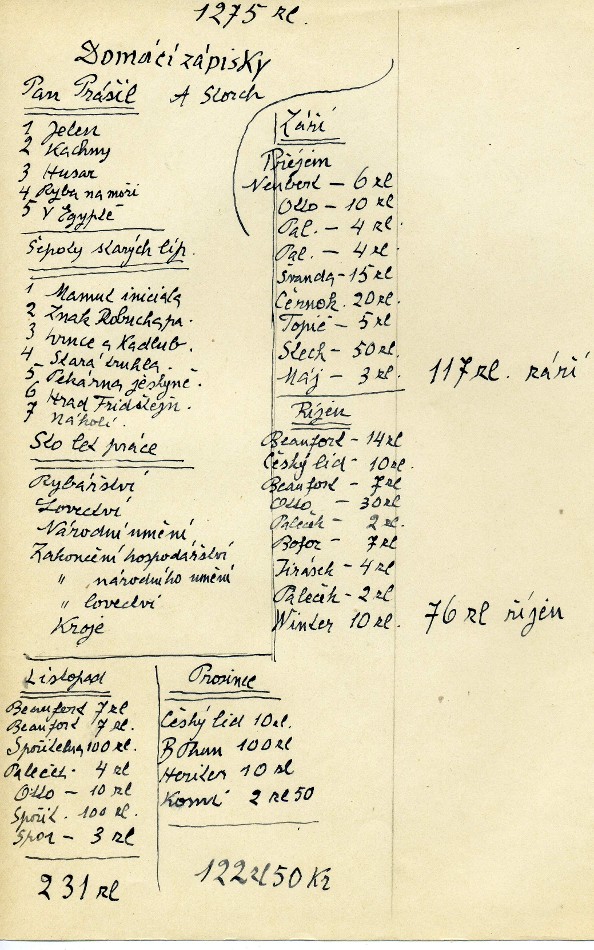 1275 zl.
Domácí zápisky
Pan Prášil
A Storch
1 Jelen
2 Kachny
3 Husar
4 Ryba na moři
5 V Egyptě
Šepoty starých lip.
1 Mamut iniciála
2 Znak
3 a Kadlub.
4 Stará truhla.
5 Pekárna jeskyně.
6 Hrad Fridštejn.
7
Sto let práce
Rybářství
Lovectví
Národní umění,
Zakončení hospodářství
" národního umění
" lovectví
Kroje
Září
Příjem
Neubert – 6 zl
Otto – 10 zl
Pal. – 4 zl
Pal. – 4 zl
Švanda – 15 zl
Černok. 20 zl.
Topič – 5 zl
Stech – 50 zl.
Máj – 3 zl.
117 zl. září
Říjen
Beaufort – 14 zl
Český lid – 10 zl.
Beaufort – 7 zl
Otto – 30 zl
Paleček – 2 zl.
Bofor – 7 zl
Jirásek – 4 zl
Paleček – 2 zl
Winter 10 zl.
76 zl říjen
Listopad
Beaufort 7 zl.
Beaufort 7 zl.
Spořitelna 100 zl.
Paleček. 4 zl
Otto – 10 zl
Spořit. 100 zl.
Špor – 3 zl
231 zl
Prosinec
Český lid 10 zl.
B Thun 100 zl
10 zl
2 zl 50
122 zl 50 Kr